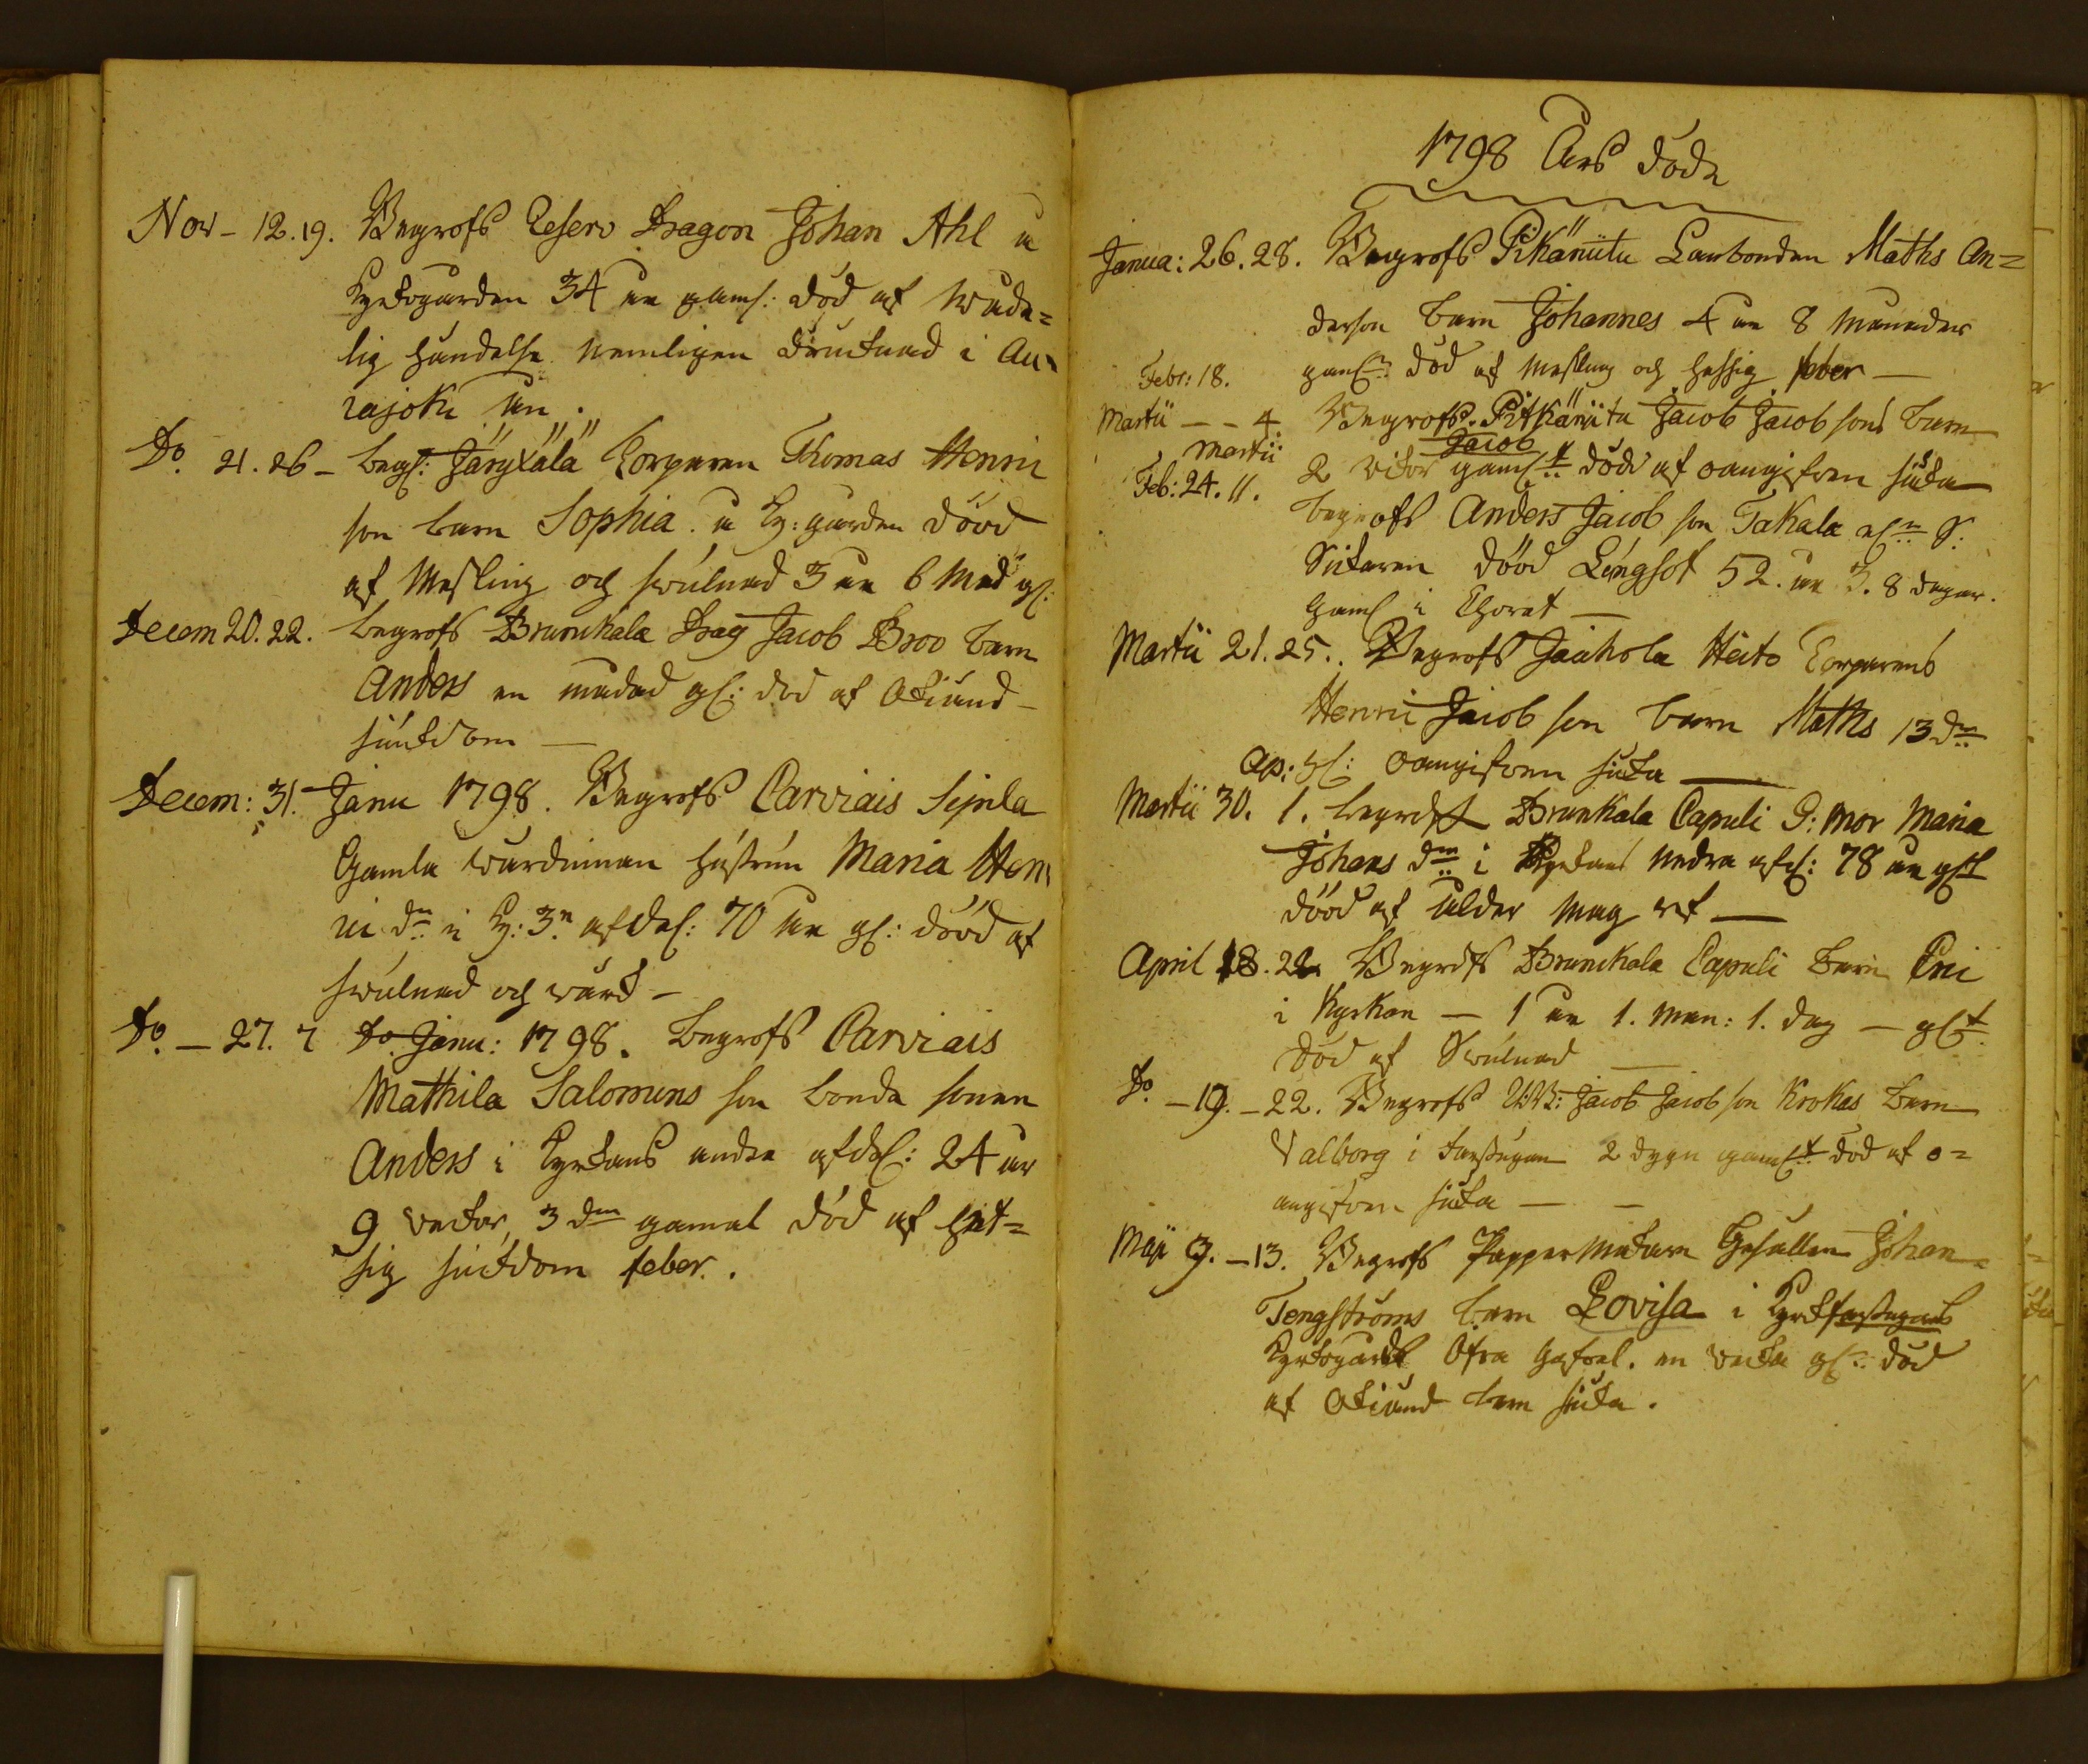 Nov - 12.19. Begrofs Reserv Dragon Johan Ahl å
Kyrkogården 34 åer gaml: död af wåde=
lig händelse nemligen druknad i Au=
rajoki ån.
Do. 21. 26 - begr: Järyxälä Torparen Thomas Henric
son barn Sophia å Ky: gården död
af Mesling och swulnad 3 åer 6 Mad gl:
Decem 20. 22. begrofs Brunkala Drag Jacob Broo barn
Anders en månad gl: död af Okiänd
siukdom —
Decem: 31. Janu 1798. Begrofs Carviais Sipila
Gamla Wärdinnan hustrun Maria Hen
ric dr i Ky: 3n afdel: 70 åer gl: död af
swulnad och wärk -
Do. — 27. 7 Do. Janu: 1798. Begrofs Carviais
Mathila Salomons son bonde sonen
Anders i Kyrkans andra afdel: 24 åer
9 veckor, 3 dar gamal död af het=
sig siukdom feber.
1798 Års döde
Janua: 26. 28. Begrofs Pikäniitu Lanbonden Maths An=
derson barn Johannes 4 åer 8 månader
Febr: 18. gaml död af Mesling och hessig feber —
Martii — — 4 Begrofs Pitkäniitu Jacob Jacob sons barn
Martii Jacob
Feb: 24. 11. 2 vikor gaml död af oangifven siuka
begrofs Anders Jacob son Takala
död Lungsot 52. åer 3. 8 dagar.
Gaml i Choret —
Martii 21. 25.. Begrofs Jaakola Heito Torparens
Henric Jacob son barn Maths 13 dr
Ap: gl: oangifven siuka —
Martii 30. 1. begrofs Brunkala Capuli G: Mor Maria
Johans dr i Kyrkans nedra afd: 78 åer gl
död af ålder —
April 18. 22 Begrofs Brunkala Capuli Barn Eric
i Kyrkan — 1 åer 1. Mån: 1. dag — glt
död af Swulnad —
Do. — 19. — 22. Begrofs Jacob Jacob son Krokas Barn
Valborg i farstugan 2 dygn gamlt död af o=
angifven siuka — —
Maji 9. — 13. Begrofs Papper Makare Gesällen Johan
Tengströms barn Lovisa i Kyrkfarstugans
Kyrkogårds Öfra en vecka gl: död
af Okiänd barn siuka.